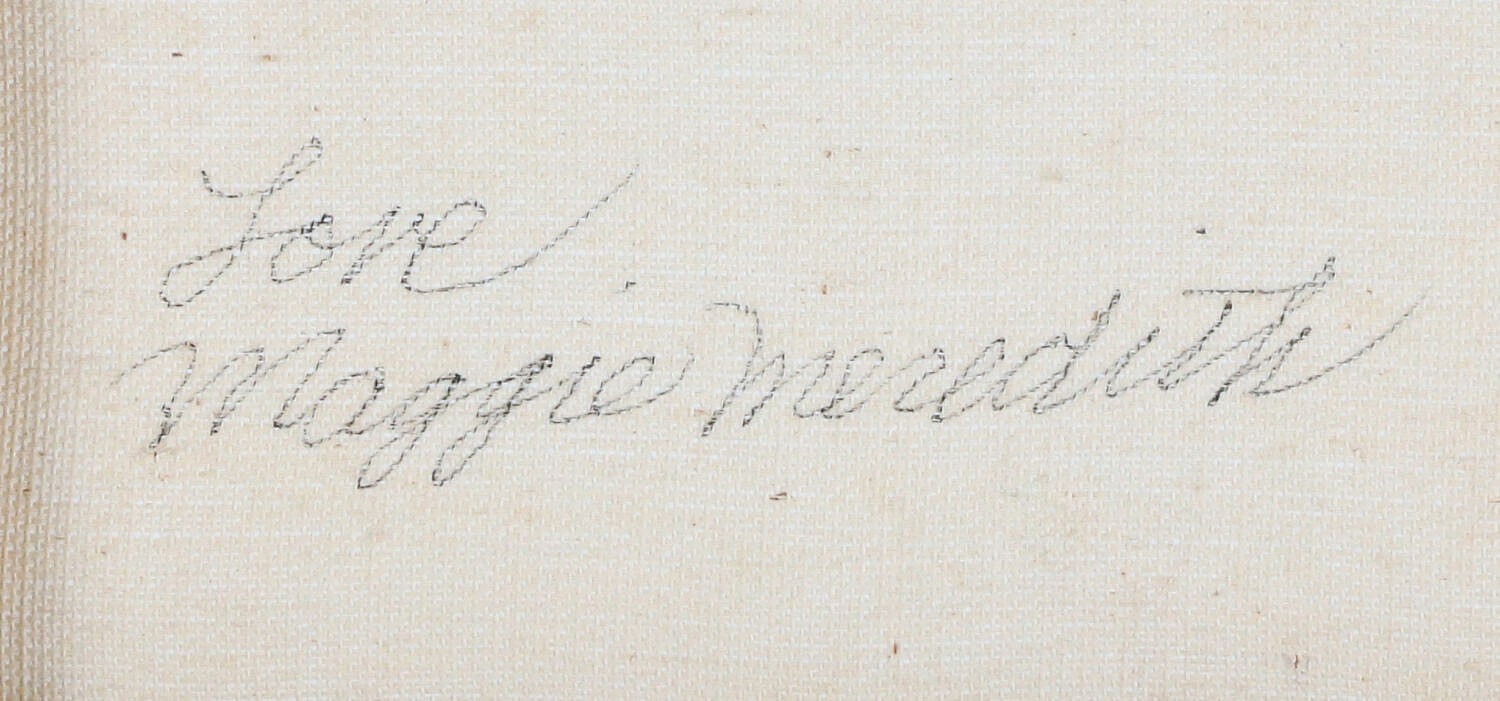 Love
Maggie Meredith